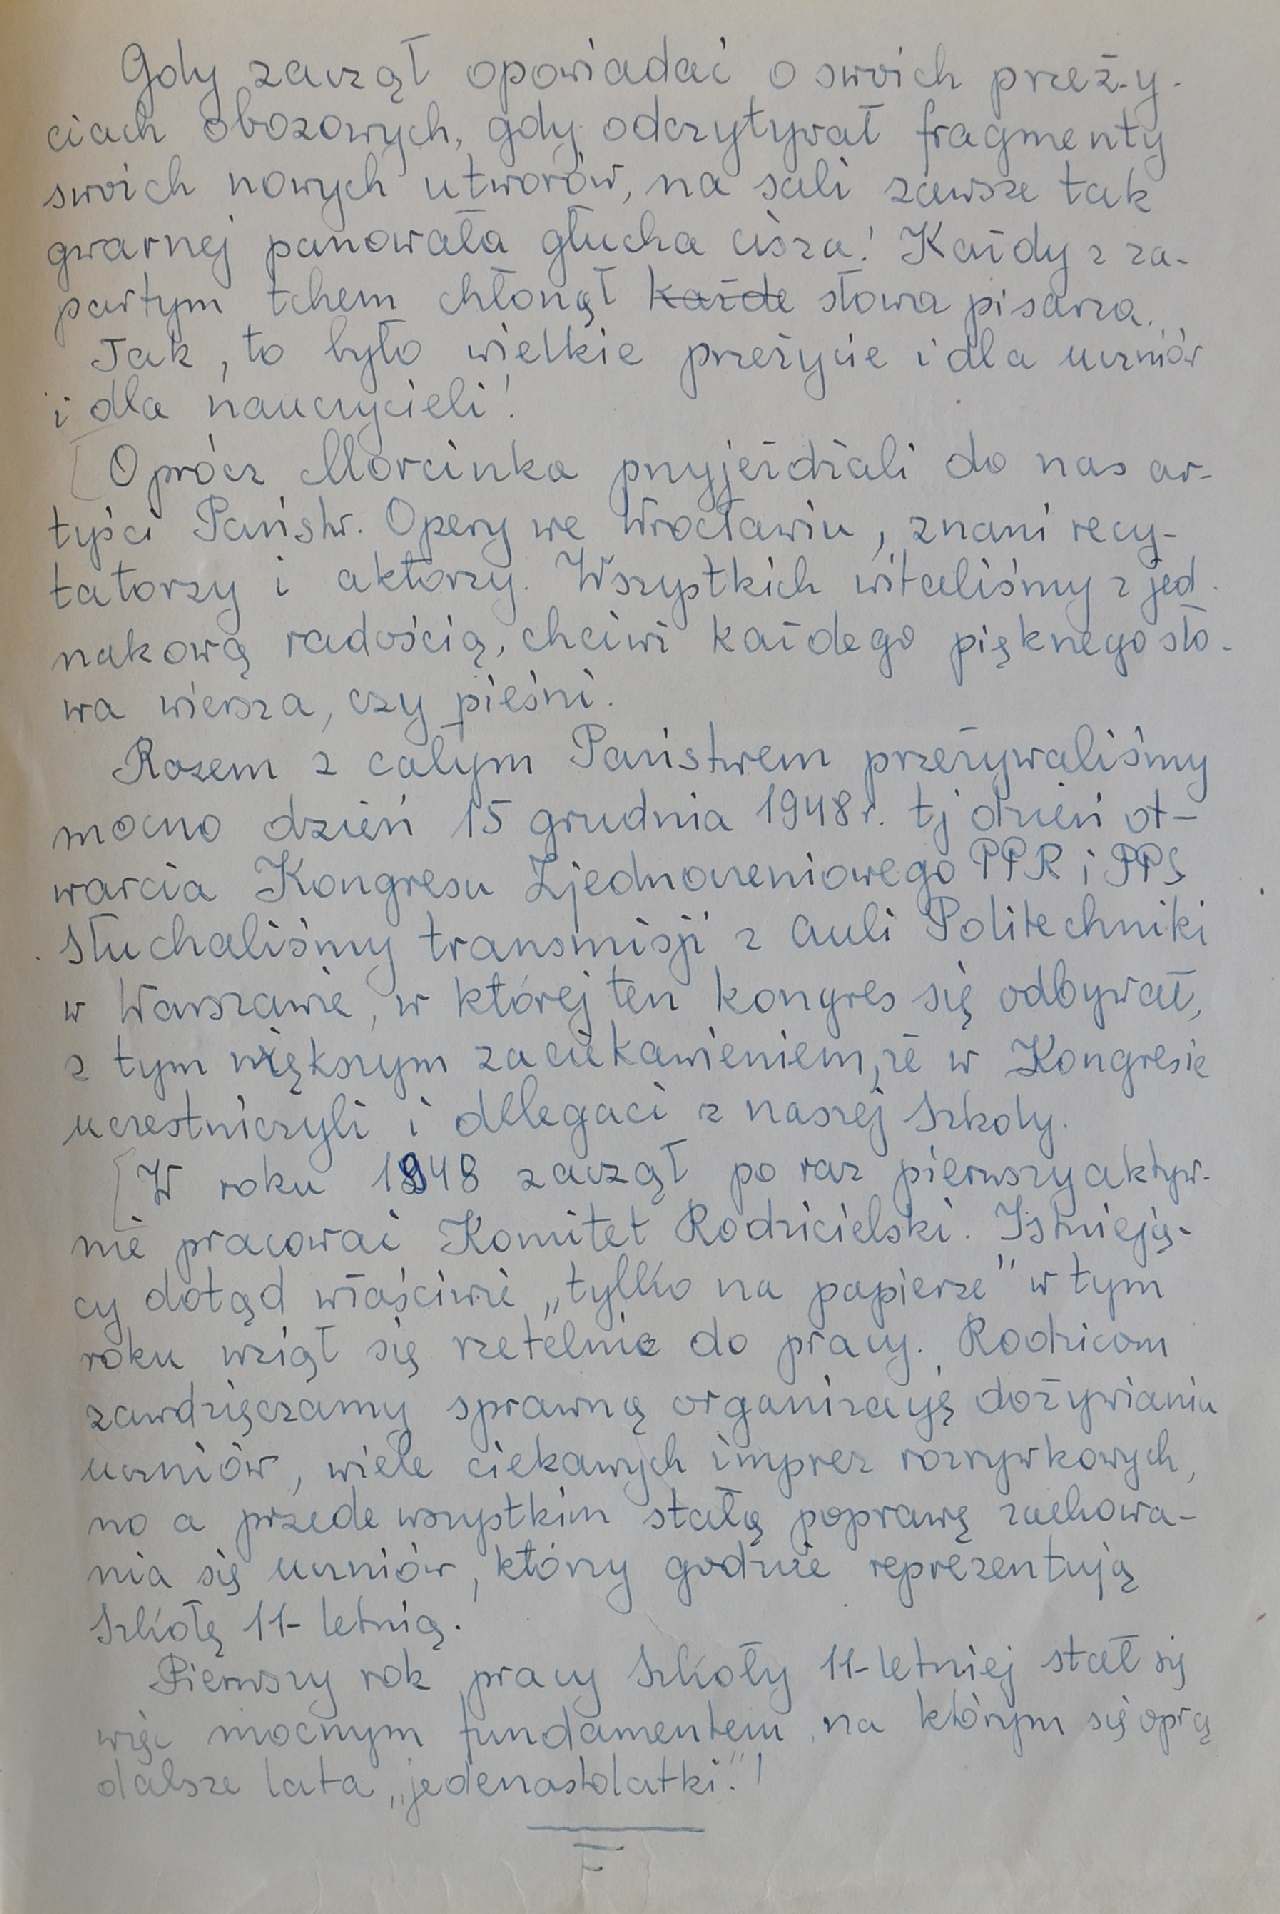 Gdy zaczął opowiadać o swoich przeży-
ciach obozowych, gdy odczytywał fragmenty
swoich nowych utworów, na sali zawsze tak
gwarnej panowała głucha cisza! Każdy z za-
partym tchem chłonął każde słowa pisarza.
Tak, to było wielkie przeżycie i dla uczniów
i dla nauczycieli!
[Oprócz Morcinka przyjeżdżali do nas ar-
tyści Państw. Opery we Wrocławiu, znani recy-
tatorzy i aktorzy. Wszystkich witaliśmy z jed-
nakową radością, chciwi każdego pięknego sło-
wa wiersza, czy pieśni.
Razem z całym Państwem przeżywaliśmy
mocno dzień 15 grudnia 1948 r. tj dzień ot-
warcia Kongresu Zjednoczeniowego PPR i PPS
Słuchaliśmy transmisji z auli Politechniki
w Warszawie, w której ten kongres się odbywał,
z tym większym zaciekawieniem, że w Kongresie
uczestniczyli i delegaci z naszej Szkoły.
[W roku 1948 zaczął po raz pierwszy aktyw-
nie pracować Komitet Rodzicielski. Istnieją-
cy dotąd właściwie „tylko na papierze" w tym
roku wziął się rzetelnie do pracy. Rodzicom
zawdzięczamy sprawną organizację dożywiania
uczniów, wiele ciekawych imprez rozrywkowych,
no a przede wszystkim stałą poprawę zachowa-
nia się uczniów, którzy godnie reprezentują
Szkołę 11-letnią.
Pierwszy rok pracy Szkoły 11-letniej stał się
więc mocnym fundamentem, na którym się oprą
dalsze lata „jedenastolatki."!